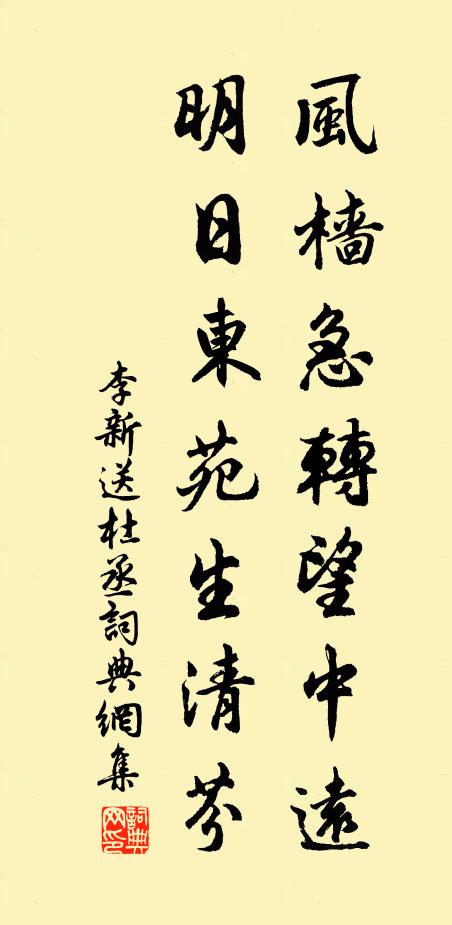 風檣急轉望中遠
明日東苑生清芬
李新送杜丞詞典網集
詞典网印